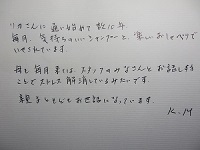 りかさんに通い始めて数10年
毎月、気持ちのいいシャンプーと、楽しいおしゃべりで
いやされています
母と毎月来てはスタッフのみなさんとお話しする
ことでストレス解消しているみたいです。
親子ともどもお世話になっています。
K.M